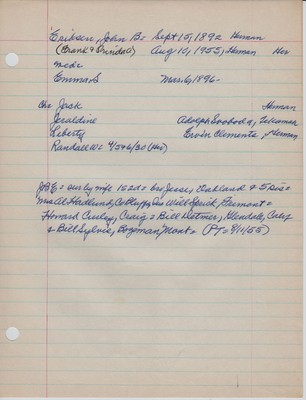 Eriksen, John B= Sept 15, 1892 Herman
(Frank & Trinidad) Aug 10, 1955, Herman Her
medc
Emma S Mar. 6, 1896-
Chr Jack Herman
Geraldine Adolph Svoboda, Tekamah
Liberty Ervin Clements, Herman
Randall W= 4/5+6/30 (Her)
JBE= sur by wife 1s 2d= bro Jesse, Oakland & 5 sis=
Mrs Al Hadlund, C Bluffs, Ia= Will Spick, Fremont=
Howard Cauley, Craig= Bill Detmer, Glendale, Calif
& Bill Sylvis, Bozeman, Mont= (PT= 8/11/55)